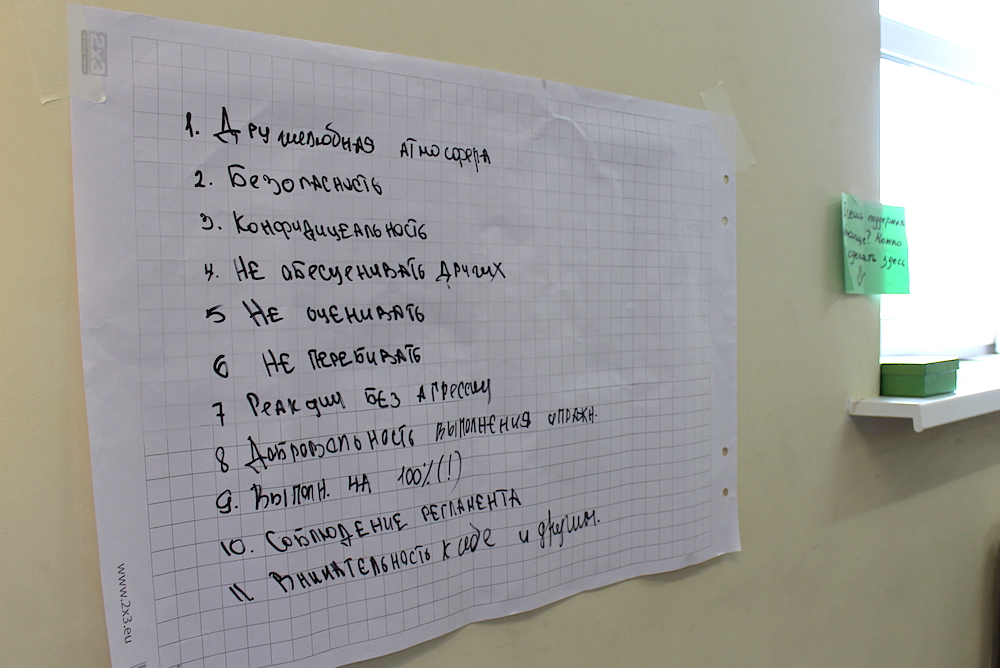 2x3
1. Дружелюбная атмосфера
2. Безопасность
3. Конфидицеальность
4. Не обесценивать других
5 Не оценивать
6 Не перебивать
7 Реакции без агрессии
8 Добровольность выполнения упражн.
9. Выполн. на 100% (!)
10. Соблюдение регламента
11 Внимательность к себе и другим.
www.2x3.eu
поддержать
? Можно
сделать здесь